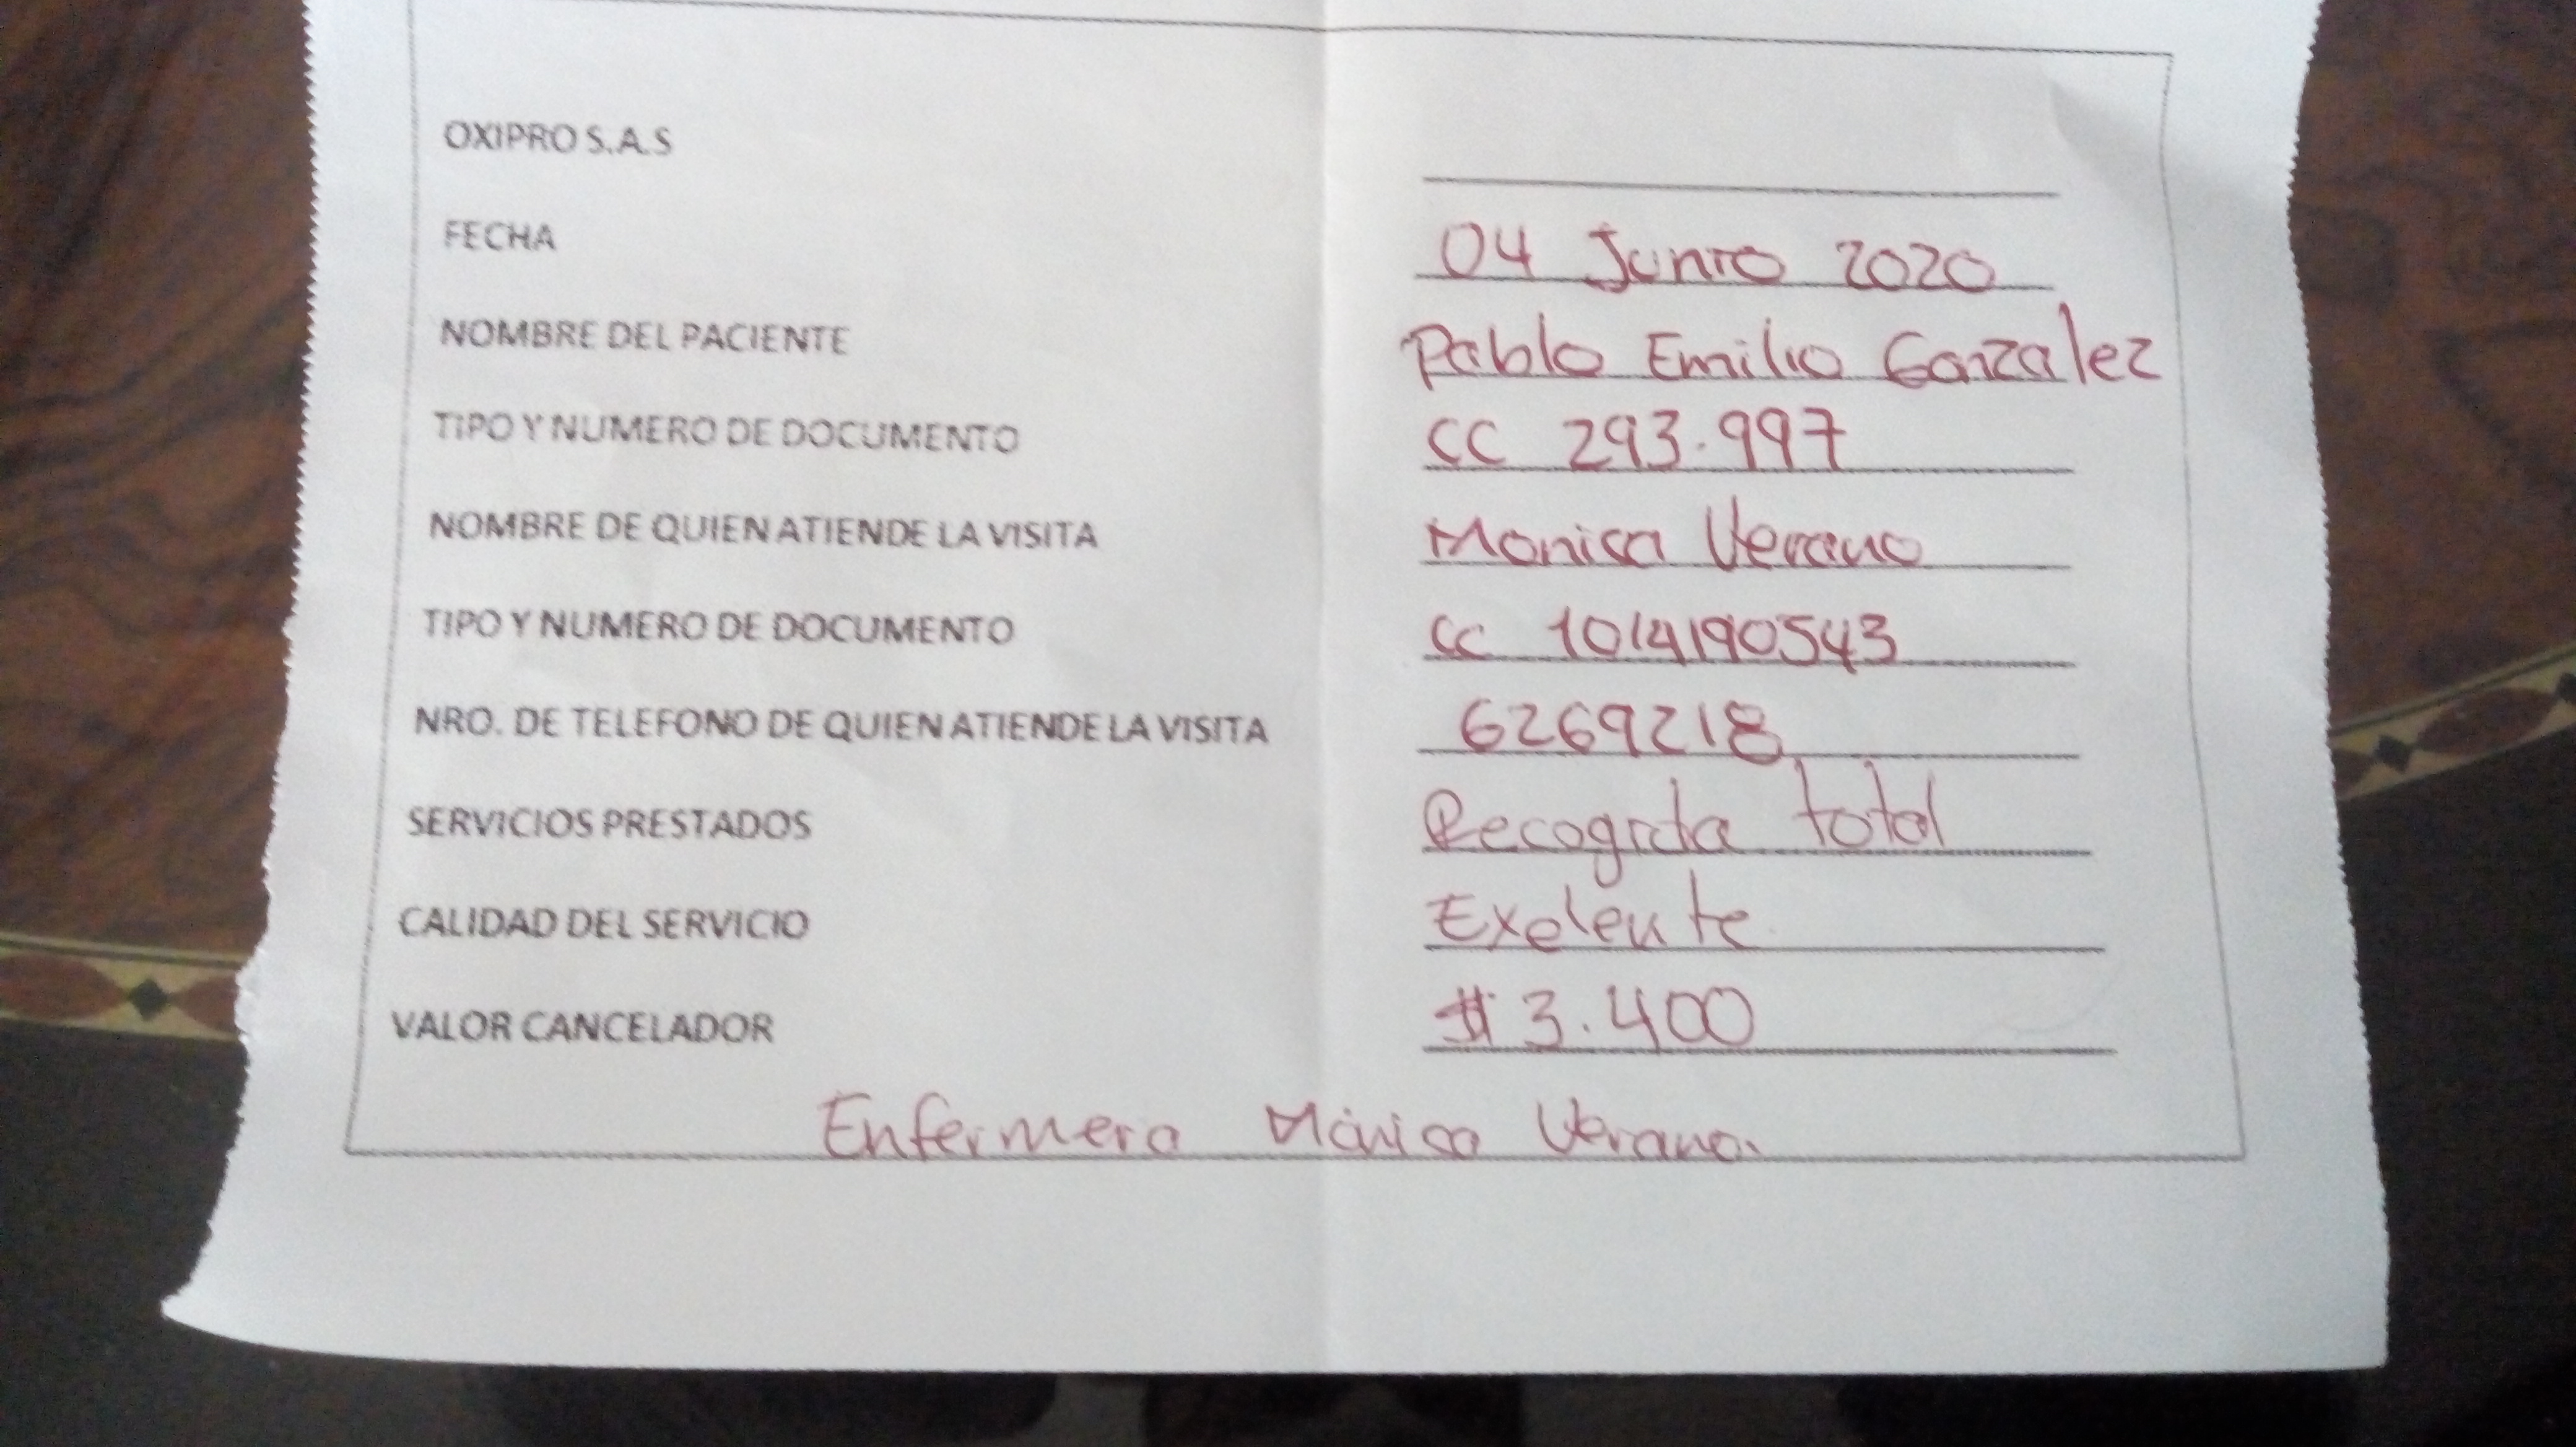 OXIPRO S.A.S
FECHA 04 Junio 2020
NOMBRE DEL PACIENTE Pablo Emilio Gonzalez
TIPO Y NUMERO DE DOCUMENTO CC 293.997
NOMBRE DE QUIEN ATIENDE LA VISITA Monica Verano
TIPO Y NUMERO DE DOCUMENTO CC 1014190543
NRO. DE TELEFONO DE QUIEN ATIENDE LA VISITA 6269218
SERVICIOS PRESTADOS Recogida total
CALIDAD DEL SERVICIO Exelente
VALOR CANCELADOR $ 3.400
Enfermera Mónica Verano.